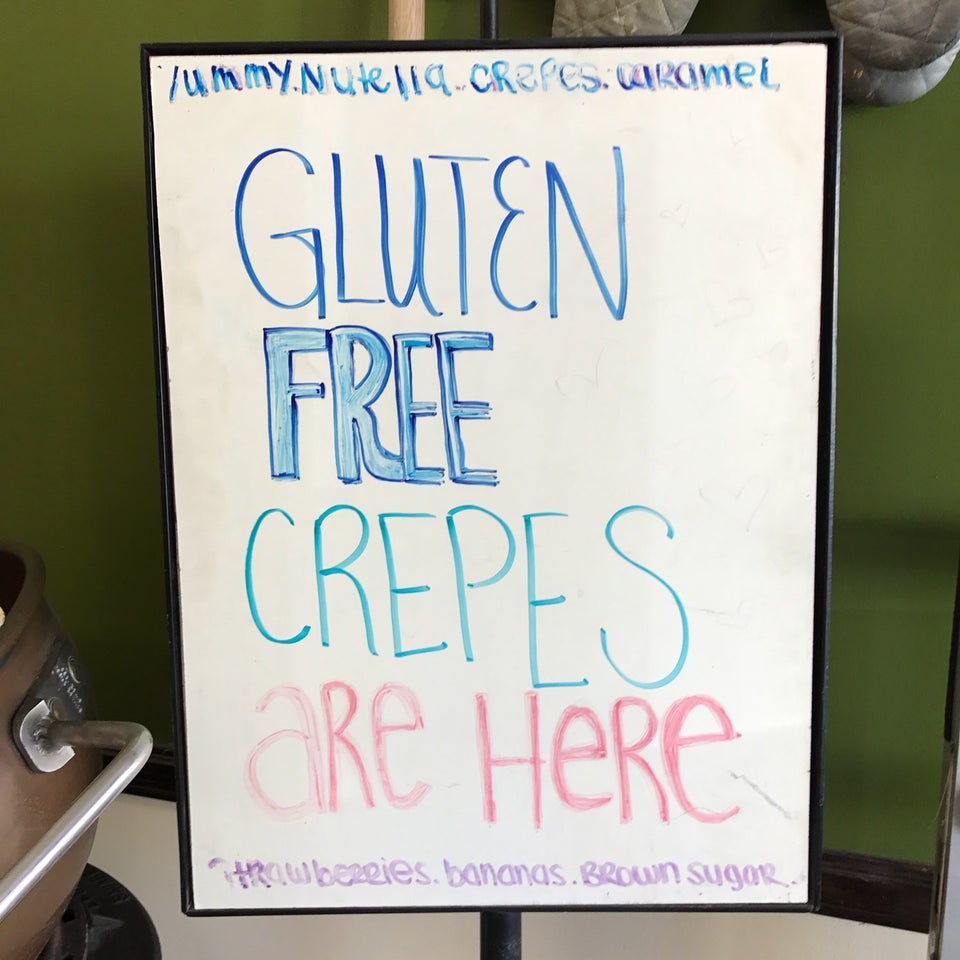 Yummy.Nutella.CREPES.caramel
GLUTEN
FREE
CREPES
aRe HeRe
StRawberries.bananas.BROWN sugar.